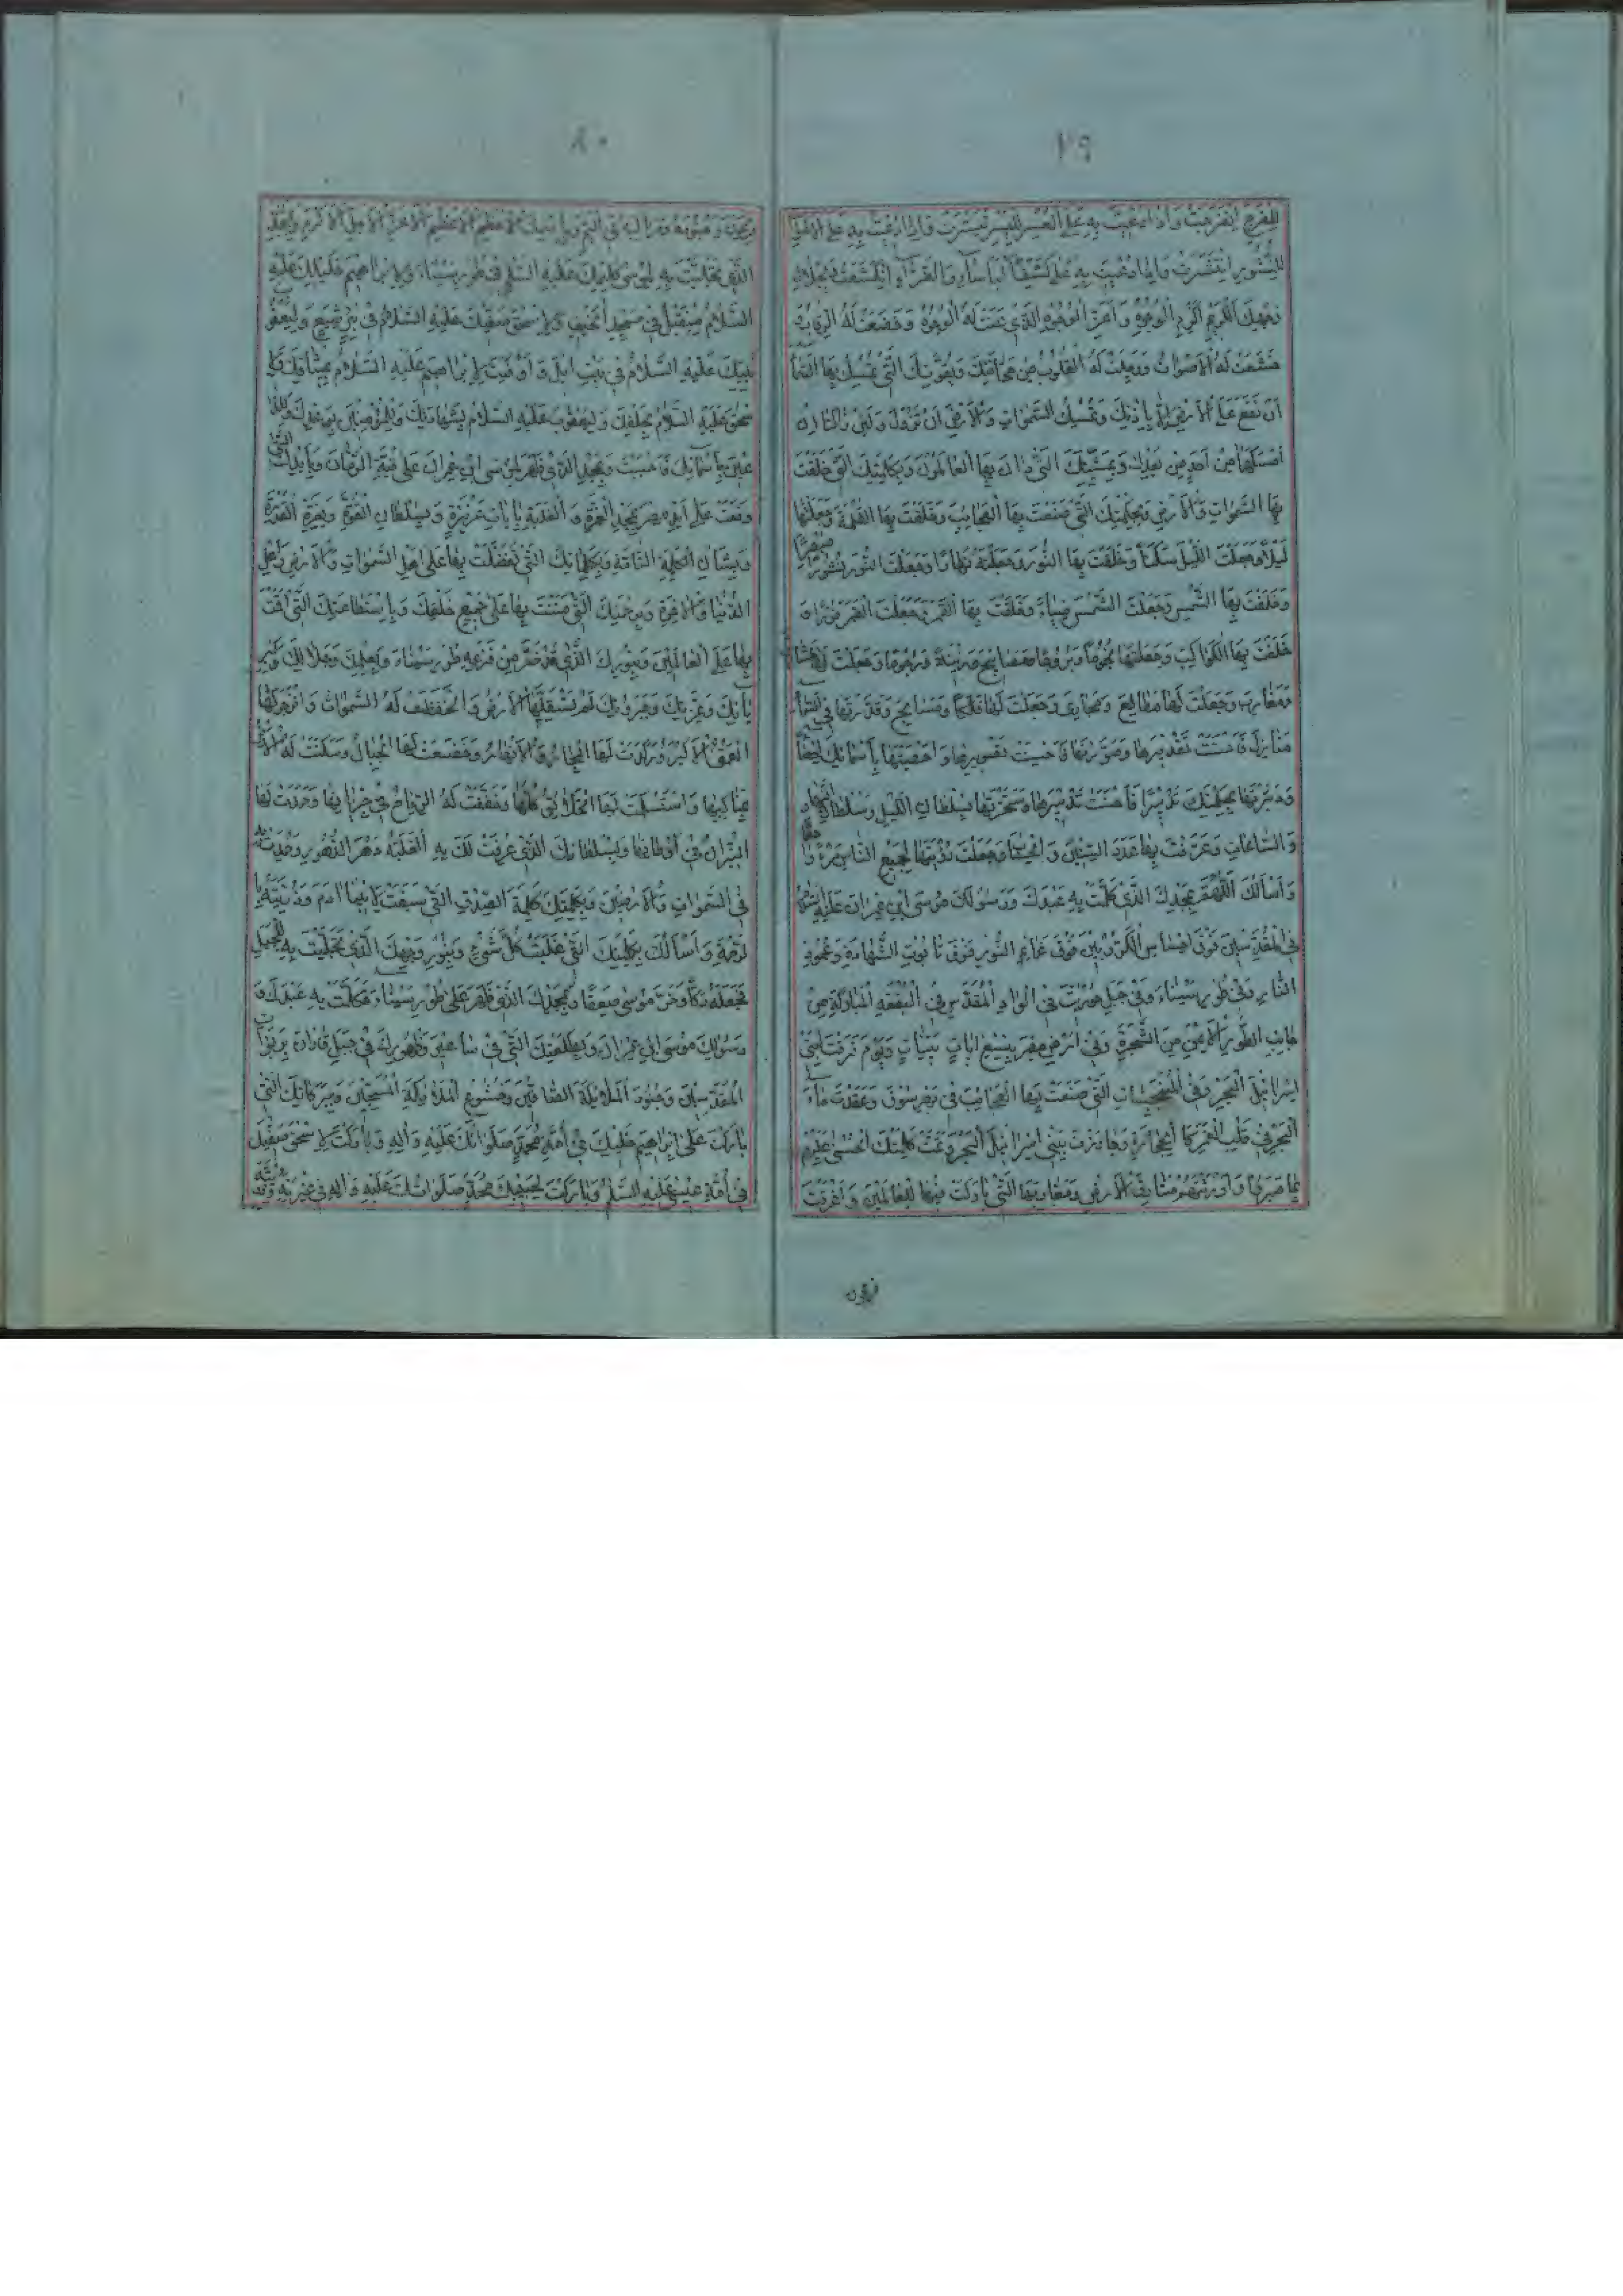 ٧٩
للفرج انفرجت واذا دعيت به على العسر لليسر تيسرت واذا دعيت به على الاموات
للنشور انتشرت واذا دعيت به على كشف الباساء والضراء انكشفت وبجلال
وجهك الكريم اكرم الوجوه واعز الوجوه الذى عنت له الوجوه وخضعت له الرقاب و
خشعت له الاصوات ووجلت له القلوب من مخافتك وبقوتك التى تمسك بها السماء
ان تقع على الارض الا باذنك وتمسك السموات والارض ان تزولا ولئن زالتا ان
امسكهما من احد من بعده وبمشيتك التى دان بها العالمون وبكلمتك التى خلقت
بها السموات والارض وبحكمتك التى صنعت بها العجائب وخلقت بها الظلمة وجعلتها
ليلا وجعلت الليل سكنا وخلقت بها النور وجعلته نهارا وجعلت النهار نشورا مبصرا
وخلقت بها الشمس وجعلت الشمس ضياء وخلقت بها القمر وجعلت القمر نورا و
خلقت بها الكواكب وجعلتها نجوما وبروجا ومصابيح وزينة ورجوما وجعلت لها مشارق
ومغارب وجعلت لها مطالع ومجارى وجعلت لها فلكا ومسابح وقدرتها فى السماء
منازل فاحسنت تقديرها وصورتها فاحسنت تصويرها واحصيتها باسمائك احصاء
ودبرتها بحكمتك تدبيرا فاحسنت تدبيرها وسخرتها بسلطان الليل وسلطان النهار
والساعات وعرفت بها عدد السنين والحساب وجعلت رؤيتها لجميع الناس مرء واحدا
واسالك اللهم بمجدك الذى كلمت به عبدك ورسولك موسى ابن عمران عليه السلام
فى المقدسين فوق احساس الكروبين فوق غمائم النور فوق تابوت الشهادة وعمود
النار وفى طور سيناء وفى جبل حوريث فى الواد المقدس فى البقعة المباركة من
جانب الطور الايمن من الشجرة وفى ارض مصر بتسع ايات بينات ويوم فرقت لبنى
اسرائيل البحر وفى المنبجسات التى صنعت بها العجائب فى بحر سوف وعقدت ماء
البحر فى قلب الغمر كالحجارة وجاوزت ببنى اسرائيل البحر وتمت كلمتك الحسنى عليهم
بما صبروا واورثتهم مشارق الارض ومغاربها التى باركت فيها للعالمين واغرقت
فرعون
٨٠
وجنوده ومراكبه فى اليم وباسمك العظيم الاعظم الاعز الاجل الاكرم وبمجدك
الذى تجليت به لموسى كليمك عليه السلم فى طور سيناء ولابراهيم خليلك عليه
السلام من قبل فى مسجد الخيف ولاسحق صفيك عليه السلام فى بئر شيع وليعقوب
نبيك عليه السلام فى بيت ايل واوفيت لابراهيم عليه السلام بميثاقك ولا
سحق عليه السلام بحلفك وليعقوب عليه السلام بشهادتك وللمؤمنين بوعدك وللدا
عين باسمائك فاجبت وبمجدك الذى ظهر لموسى ابن عمران على قبة الرمان وباياتك التى
وقعت على ارض مصر بمجد العزة والغلبة بايات عزيزة وبسلطان القوة وبعزة القدرة
وبشان الكلمة التامة وبكلماتك التى تفضلت بها على اهل السموات والارض واهل
الدنيا والاخرة وبرحمتك التى مننت بها على جميع خلقك وباستطاعتك التى اقمت
بها على العالمين وبنورك الذى قد خر من فزعه طور سيناء وبعلمك وجلالك وكبر
يائك وعزتك وجبروتك لم تستقلها الارض وانخفضت له السموات وانزجر لها
العمق الاكبر وركدت لها البحار والانهار وخضعت لها الجبال وسكنت له الارض
بمناكبها واستسلمت لها الخلائق كلها وخفقت له الرياح فى جريانها وخمدت لها
النيران فى اوطانها وبسلطانك الذى عرفت لك به الغلبة دهر الدهور وحمدت به
فى السموات والارضين وبكلمتك كلمة الصدق التى سبقت لابينا ادم وذريته با
لرحمة واسالك بكلمتك التى غلبت كل شئ وبنور وجهك الذى تجليت به للجبل
فجعلته دكا وخر موسى صعقا وبمجدك الذى ظهر على طور سيناء فكلمت به عبدك و
رسولك موسى ابن عمران وبطلعتك التى فى ساعير وظهورك فى جبل فاران بربوات
المقدسين وجنود الملائكة الصافين وخشوع الملائكة المسبحين وببركاتك التى
باركت على ابراهيم خليلك فى امة محمد صلواتك عليه واله وباركت لاسحق صفيك
فى امة عيسى عليه السلم وباركت لحبيبك محمد صلواتك عليه واله فى عترته وذريته